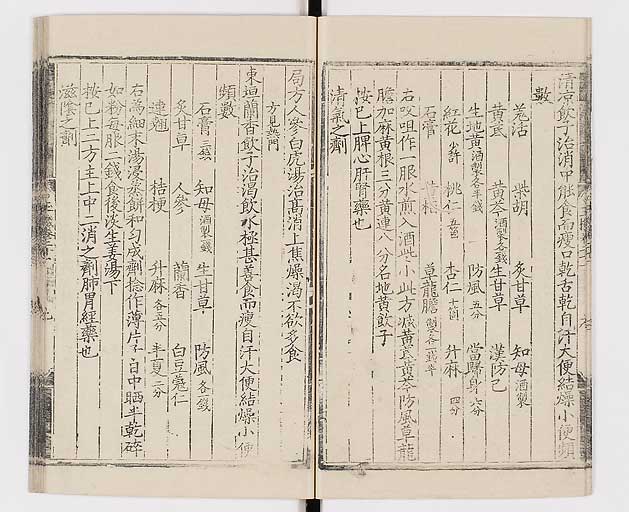 清涼飲子治消中能食而瘦口乾舌乾自汗大便結燥小便頻
數
羌活 柴胡 炙甘草 知母酒製
黃芪 黃芩酒製各錢 生甘草 漢防己
生地黃酒製各半錢 防風五分 當歸身六分
紅花少許 桃仁五箇 杏仁十箇 升麻四分
石膏 黃栢 草龍膽製各錢半
右㕮咀作一服水煎入酒些小此方減黃芪黃芩防風草龍
膽加麻黃根三分黃連八分名地黃飲子
按已上脾心肝腎藥也
清氣之劑
局方人參白虎湯治高消上焦燥渴不欲多食
方見熱門
東垣蘭香飲子治渴飲水極甚善食而瘦自汗大便結燥小便
頻數
石膏三錢 知母酒製錢 生甘草 防風各一錢
炙甘草 人參 蘭香 白豆蔻仁
連翹 桔梗 升麻各五分 半夏二分
右爲細末湯浸蒸餅和勻成劑捻作薄片子日中晒半乾碎
如粉每服二錢食後淡生姜湯下
按已上二方主上中二消之劑肺胃經藥也
滋陰之劑